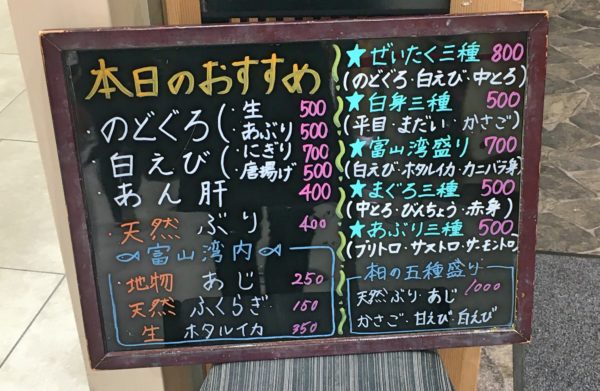 本日のおすすめ
のどぐろ(・生 500
・あぶり 500
白えび(・にぎり 700
・唐揚げ 500
あん肝 400
・天然 ぶり 400
富山湾内
・地物 あじ 250
・天然 ふくらぎ 150
・生 ホタルイカ 350
★ぜいたく三種 800
(のどぐろ・白えび・中とろ)
★白身三種 500
(平目・まだい・かさご)
★富山湾盛り 700
(白えび・ホタルイカ・カニバラ身)
★まぐろ三種 500
(中とろ・びんちょう・赤身)
★あぶり三種 500
(ブリトロ・サストロ・サーモントロ)
柏の五種盛り
1000
天然ぶり・あじ
かさご・甘えび・白えび